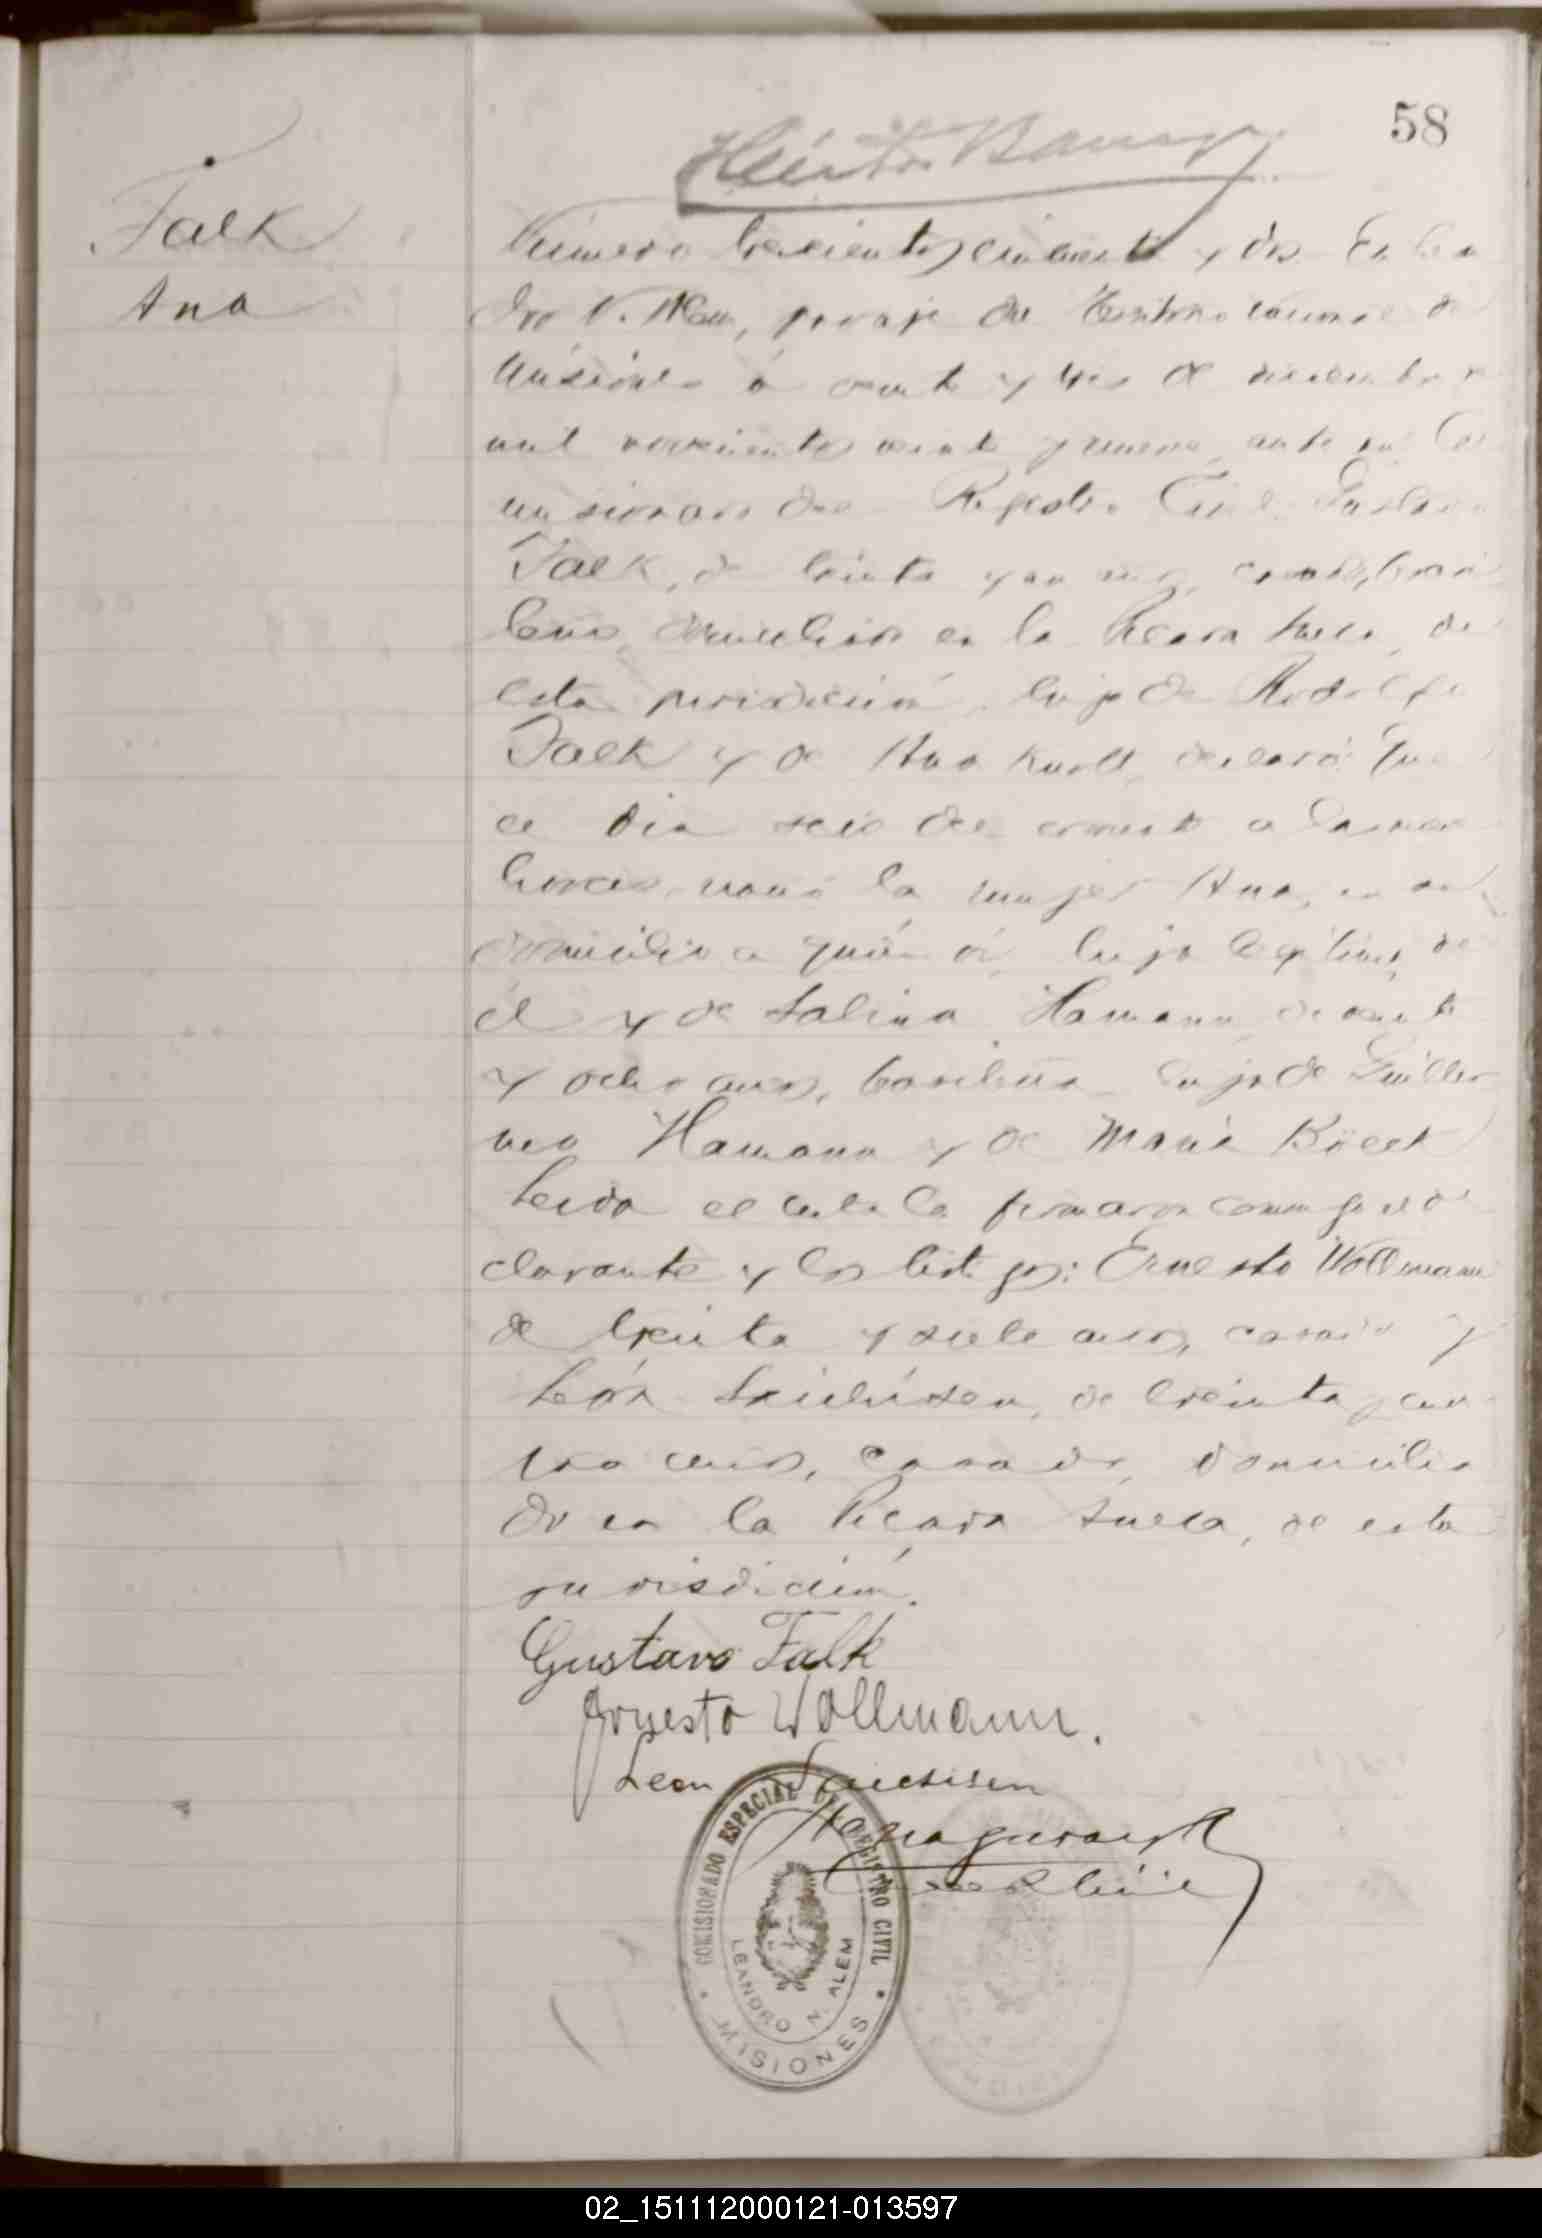 58
Falk
Ana
Número trescientos cincuenta y dos En Lean
dro N. Alem, paraje del Territorio Nacional de
Misiones á veinte y tres de diciembre de
mil novecientos veinte y nueve, ante mí Co
misionado del Registro Civil Gustavo
Falk, de treinta y un años, casado, brasi
leño, domiciliado en la Picada Sueca, de
esta jurisdicción, hijo de Rodolfo
Falk y de Ana Knoll, declaró: Que
el dia seis del corriente a las nueve
horas, nació la mujer Ana, en su
domicilio a quién ví, hija legítima de
él y de Salina Hamann, de veinte
y ocho años, brasileña hija de Guiller
mo Hamann y de María
Leida el acta la firmaron conmigo el de
clarante y los testigos: Ernesto Wollmann
de treinta y siete años, casado y
León de treinta y cua
tro años, casado, domicilia
do en la Picada Sueca, de esta
jurisdicción.
Gustavo Falk
Ernesto Wollmann.
Leon
COMISIONADO ESPECIAL DEL REGISTRO CIVIL
LEANDRO N. ALEM
MISIONES
02_151112000121-013597